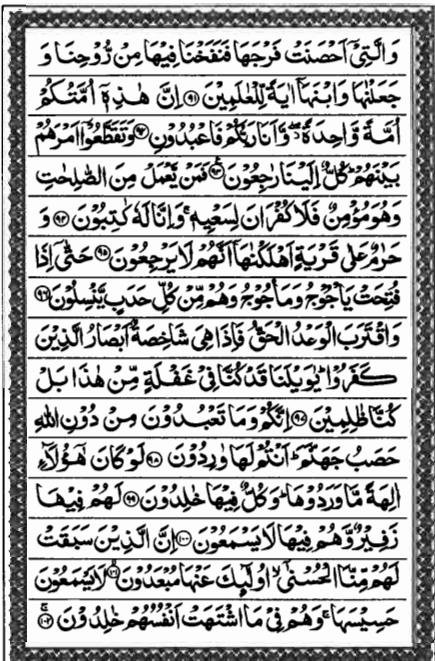 وَالَّتِیْۤ اَحْصَنَتْ فَرْجَهَا فَنَفَخْنَا فِیْهَا مِنْ رُّوْحِنَا وَ
جَعَلْنٰهَا وَابْنَهَاۤ اٰیَةً لِّلْعٰلَمِیْنَ ﴿۹۱﴾ اِنَّ هٰذِهٖۤ اُمَّتُكُمْ
اُمَّةً وَّاحِدَةً ۖؗ وَّاَنَا رَبُّكُمْ فَاعْبُدُوْنِ ﴿۹۲﴾ وَتَقَطَّعُوْۤا اَمْرَهُمْ
بَیْنَهُمْ ؕ كُلٌّ اِلَیْنَا رٰجِعُوْنَ ﴿۹۳﴾ فَمَنْ یَّعْمَلْ مِنَ الصّٰلِحٰتِ
وَهُوَ مُؤْمِنٌ فَلَا كُفْرَانَ لِسَعْیِهٖ ۚ وَاِنَّا لَهٗ كٰتِبُوْنَ ﴿۹۴﴾ وَ
حَرٰمٌ عَلٰی قَرْیَةٍ اَهْلَكْنٰهَاۤ اَنَّهُمْ لَا یَرْجِعُوْنَ ﴿۹۵﴾ حَتّٰۤی اِذَا
فُتِحَتْ یَاْجُوْجُ وَمَاْجُوْجُ وَهُمْ مِّنْ كُلِّ حَدَبٍ یَّنْسِلُوْنَ ﴿۹۶﴾
وَاقْتَرَبَ الْوَعْدُ الْحَقُّ فَاِذَا هِیَ شَاخِصَةٌ اَبْصَارُ الَّذِیْنَ
كَفَرُوْا ؕ یٰوَیْلَنَا قَدْ كُنَّا فِیْ غَفْلَةٍ مِّنْ هٰذَا بَلْ
كُنَّا ظٰلِمِیْنَ ﴿۹۷﴾ اِنَّكُمْ وَمَا تَعْبُدُوْنَ مِنْ دُوْنِ اللّٰهِ
حَصَبُ جَهَنَّمَ ؕ اَنْتُمْ لَهَا وٰرِدُوْنَ ﴿۹۸﴾ لَوْ كَانَ هٰۤؤُلَآءِ
اٰلِهَةً مَّا وَرَدُوْهَا ؕ وَكُلٌّ فِیْهَا خٰلِدُوْنَ ﴿۹۹﴾ لَهُمْ فِیْهَا
زَفِیْرٌ وَّهُمْ فِیْهَا لَا یَسْمَعُوْنَ ﴿۱۰۰﴾ اِنَّ الَّذِیْنَ سَبَقَتْ
لَهُمْ مِّنَّا الْحُسْنٰۤی ۙ اُولٰٓئِكَ عَنْهَا مُبْعَدُوْنَ ﴿۱۰۱﴾ لَا یَسْمَعُوْنَ
حَسِیْسَهَا ۚ وَهُمْ فِیْ مَا اشْتَهَتْ اَنْفُسُهُمْ خٰلِدُوْنَ ﴿۱۰۲﴾